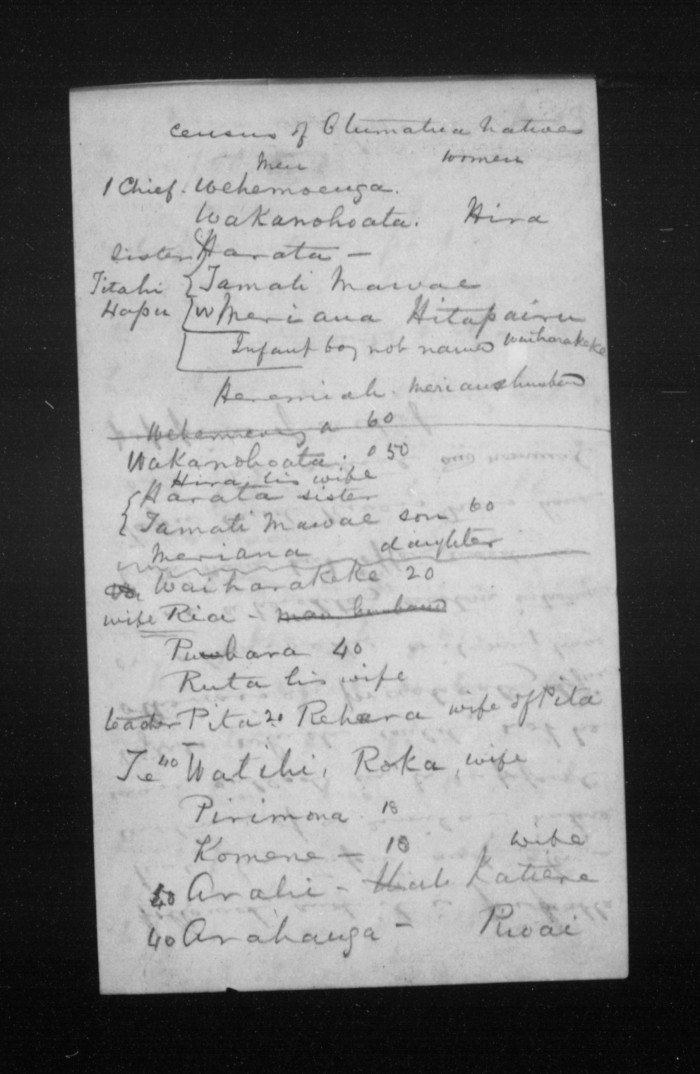 Census of Natives
Men Women
1 Chief. Wehemoenga.
Wakanohoata. Hira
Sister Harata —
Titahi { Tamati Mawae
Hapu { W Meriana Hitapairu
Infant boy not named Waiharakeke
Heremiah. Merianas husband
60
Wakanohoata. 50
Hira his wife
{ Harata sister
{ Tamati Mawae son 60
Meriana daughter
Waiharakeke 20
wife Ria - man husband
Puwhara 40
Ruta his wife
leader Pita 20 Rehera wife of Pita
Te 40 Watihi, Roka, wife
Pirimona 18
Komene — 18 wife
50 Arahi - Katiere
40 Arahauga - Riwai